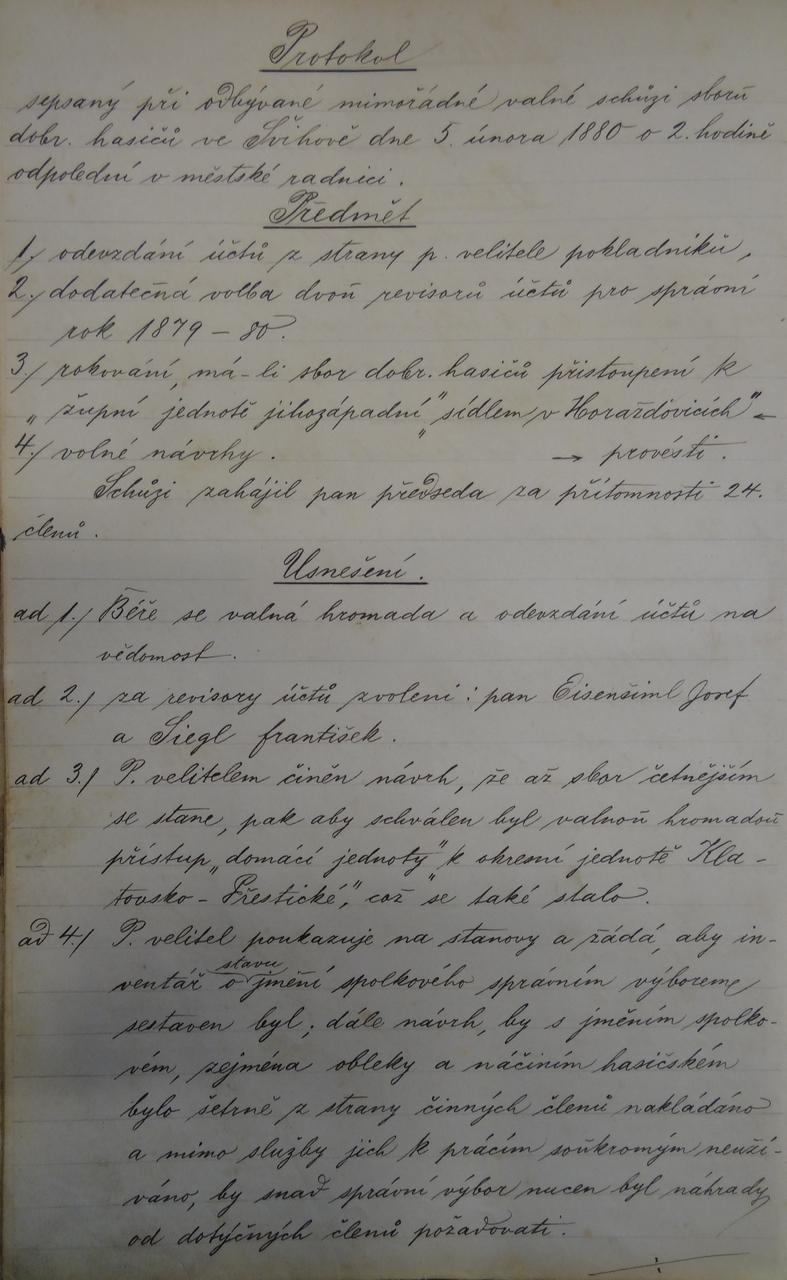 Protokol
sepsaný při odbývané mimořádné valné schůzi sboru
dobr. hasičů ve Švihově dne 5. února 1880 o 2. hodině
odpolední v městské radnici.
Předmět
1./ odevzdání účtů z strany p. velitele pokladníků,
2./ dodatečná volba dvou revisorů účtů pro správní
rok 1879 – 80.
3./ rokování, má-li sbor dobr. hasičů přistoupení k
„župní jednotě jihozápadní" „sídlem v Horažďovicích" ←
4./ volné návrhy. → provésti.
Schůzi zahájil pan předseda za přítomnosti 24.
členů.
Usnešení.
ad 1./ Béře se valná hromada a odevzdání účtů na
vědomost.
ad 2./ za revisory účtů zvoleni: pan Eisenšiml Josef
a Siegl františek.
ad 3./ P. velitelem činěn návrh, že až sbor četnějším
se stane, pak aby schválen byl valnou hromadou
přístup „domácí jednoty" k okresní jednotě „Kla-
tovsko – Přestické", což se také stalo.
ad 4./ P. velitel poukazuje na stanovy a žádá, aby in-
ventář o stavu jmění spolkového správním výborem
sestaven byl; dále návrh, by s jměním spolko-
vém, zejména obleky a náčiním hasičském
bylo šetrně z strany činných členů nakládáno
a mimo služby jich k prácím soukromým neuží-
váno, by snad správní výbor nucen byl náhrady
od dotyčných členů požadovati.